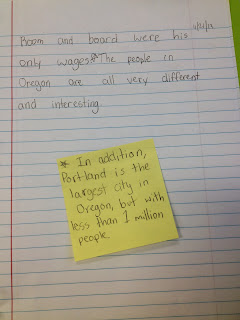 Room and board were his
only wages.*The people in
Oregon are all very different
and interesting.
* In addition,
Portland is the
largest city in
Oregon, but with
less than 1 million
people.